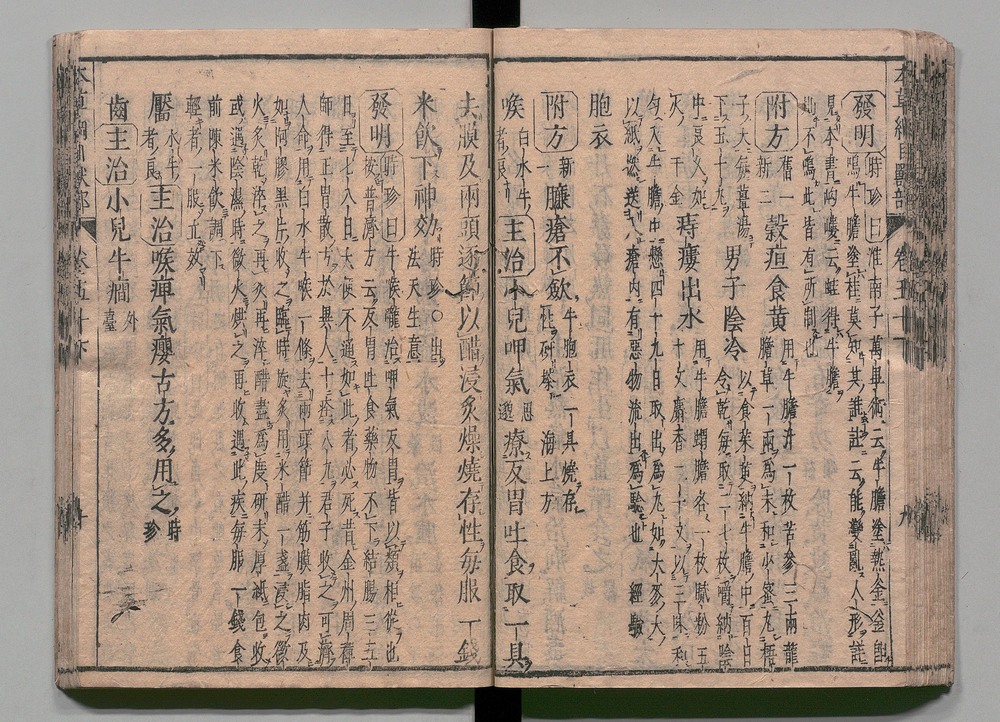 發明時珍曰淮南子萬畢術云牛膽塗熱金釜卽
鳴牛膽塗桂莫知其誰註云能變亂人形詫
見本書岣嶁云蛙得牛膽
則不鳴此皆有所制也
附方舊一新二穀疸食黃用牛膽汁一枚苦參三兩龍
膽草一兩爲末和少蜜丸梧
子大每薑湯
下五十丸男子陰冷以食茱萸納牛膽中百日
令乾每取二七枚嚼納陰
中良久如
火千金痔瘻出水用牛膽蝟膽各一枚膩粉五
十文麝香二十文以三味和
勻入牛膽中懸四十九日取出爲丸如大麥大
以紙撚送入瘡内有惡物流出爲驗也經驗
胞衣
附方新一臁瘡不斂牛胞衣一具燒存
性研搽海上方
喉白水牛者良主治小兒呷氣思邈療反胃吐食取一具
去膜及兩頭逐節以醋浸炙燥燒存性每服一錢
米飲下神效時珍○出
法天生意
發明時珍曰牛喉嚨治呷氣反胃皆以類相從也
按普濟方云反胃吐食藥物不下結腸三五
日至七八日大便不通如此者必死昔金州周禪
師得正胃散方於異人十痊八九君子收之可濟
人命用白水牛喉一條去兩頭節并筋膜脂肉及
如阿膠黑片收之臨時旋炙用米醋一盞浸之微
火炙乾淬之再炙再淬醋盡爲度研末厚紙包收
或遇陰濕時微火烘之再收遇此疾每服一錢食
前陳米飲調下
輕者一服立效
靨水牛者良主治喉痺氣癭古方多用之時珍
齒主治小兒牛癎外臺